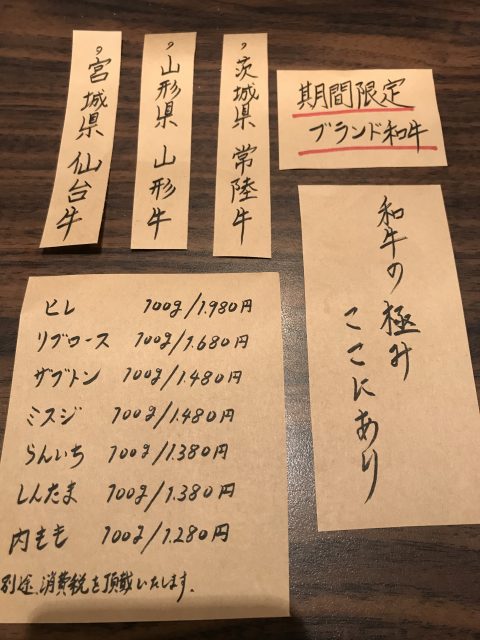 宮城県 仙台牛
山形県 山形牛
茨城県 常陸牛
期間限定
ブランド和牛
和牛の極み
ここにあり
ヒレ 100g/1.980円
リブロース 100g/1.680円
ザブトン 100g/1.480円
ミスジ 100g/1.480円
らんいち 100g/1.380円
しんたま 100g/1.380円
内もも 100g/1.280円
別途、消費税を頂戴いたします。